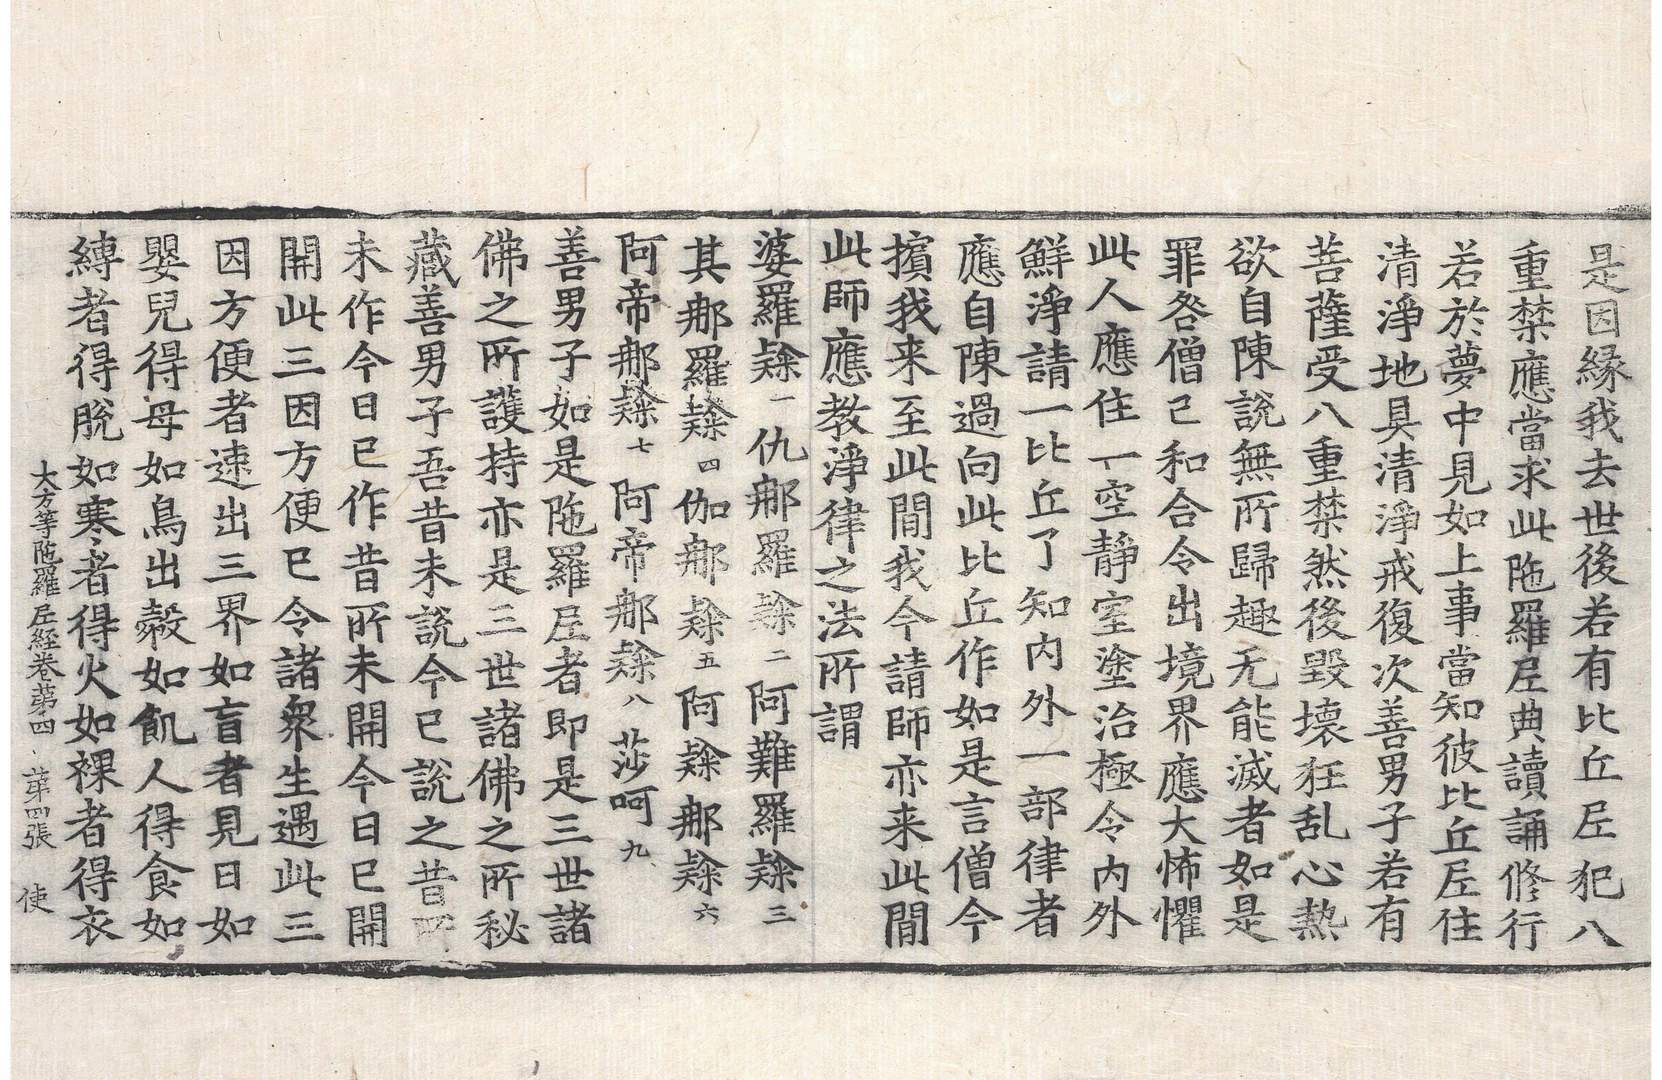 是因緣我去世後若有比丘尼犯八
重禁應當求此陁羅尼典讀誦修行
若於夢中見如上事當知彼比丘尼住
清淨地具清淨戒復次善男子若有
菩薩受八重禁然後毀壞狂乱心熱
欲自陳說無所歸趣无能滅者如是
罪咎僧已和合令出境界應大怖懼
此人應住一空靜室塗治極令內外
鮮淨請一比丘了知内外一部律者
應自陳過向此比丘作如是言僧今
擯我来至此間我今請師亦来此間
此師應教淨律之法所謂
婆羅隸一仇那羅隸二阿難羅隸三
其那羅隸四伽那隸五阿隸那隸六
阿帝那隸七阿帝那隸八莎呵九
善男子如是陁羅尼者即是三世諸
佛之所護持亦是三世諸佛之所秘
藏善男子吾昔未說今已說之昔所
未作今日已作昔所未開今日已開
開此三因方便已令諸衆生遇此三
因方便者速出三界如盲者見日如
嬰兒得母如鳥出㲉如飢人得食如
縛者得脫如寒者得火如裸者得衣
大方等陁羅尼経卷第四 第四張 使